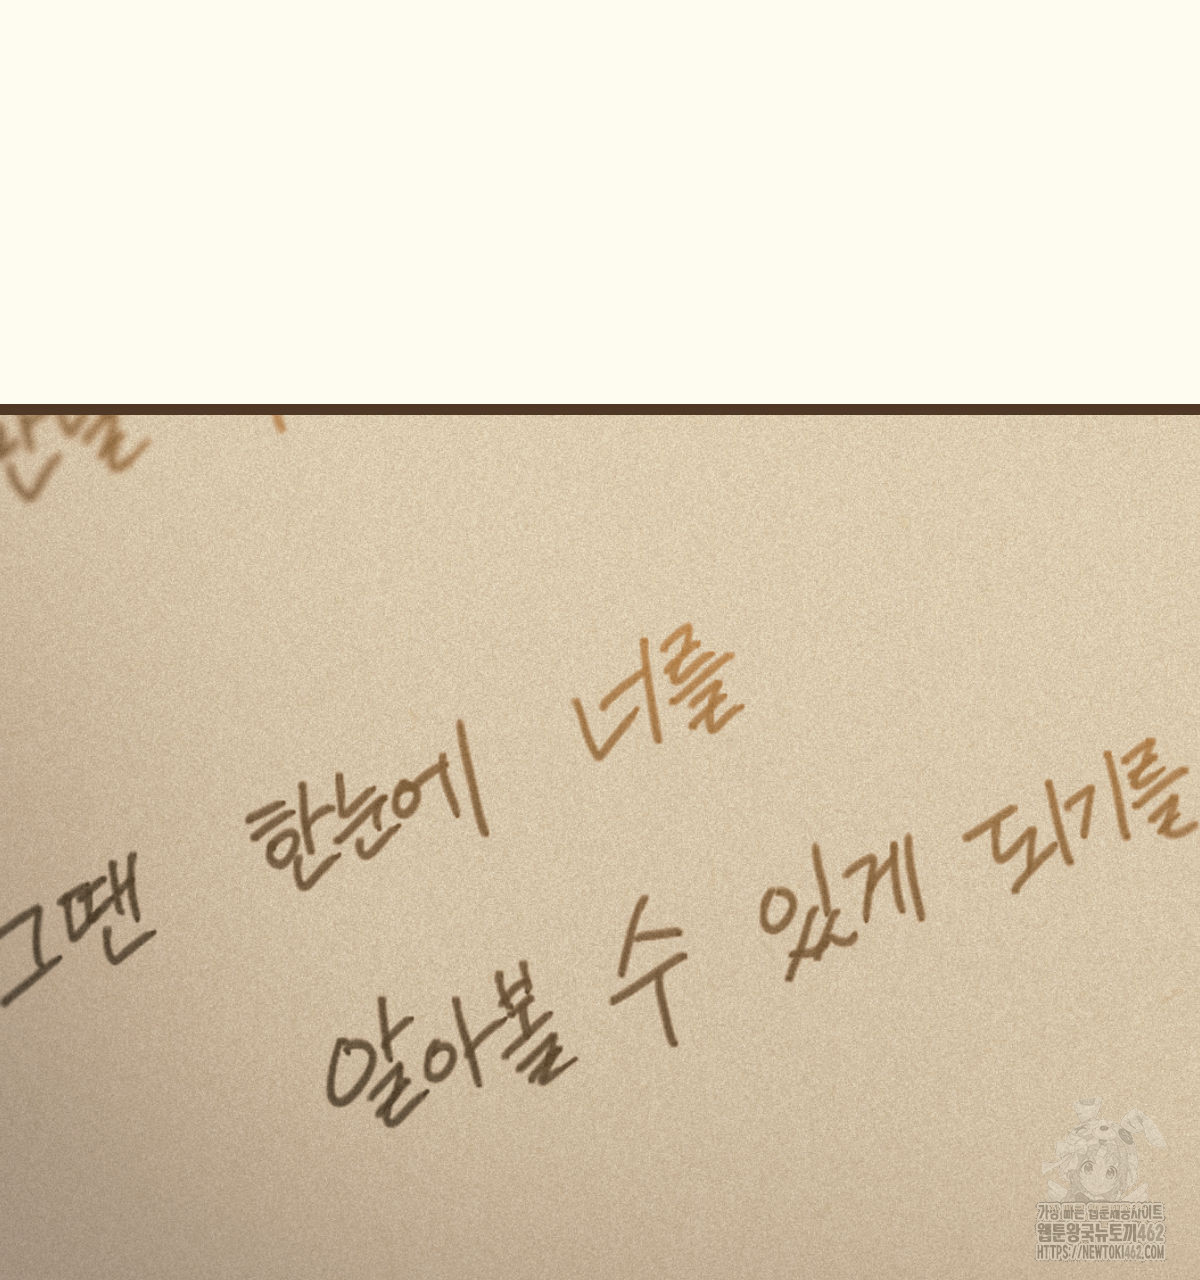 그땐 한눈에 너를
알아볼 수 있게 되기를
가장 빠른 웹툰제공사이트
웹툰왕국뉴토끼462
HTTPS://NEWTOKI462.COM